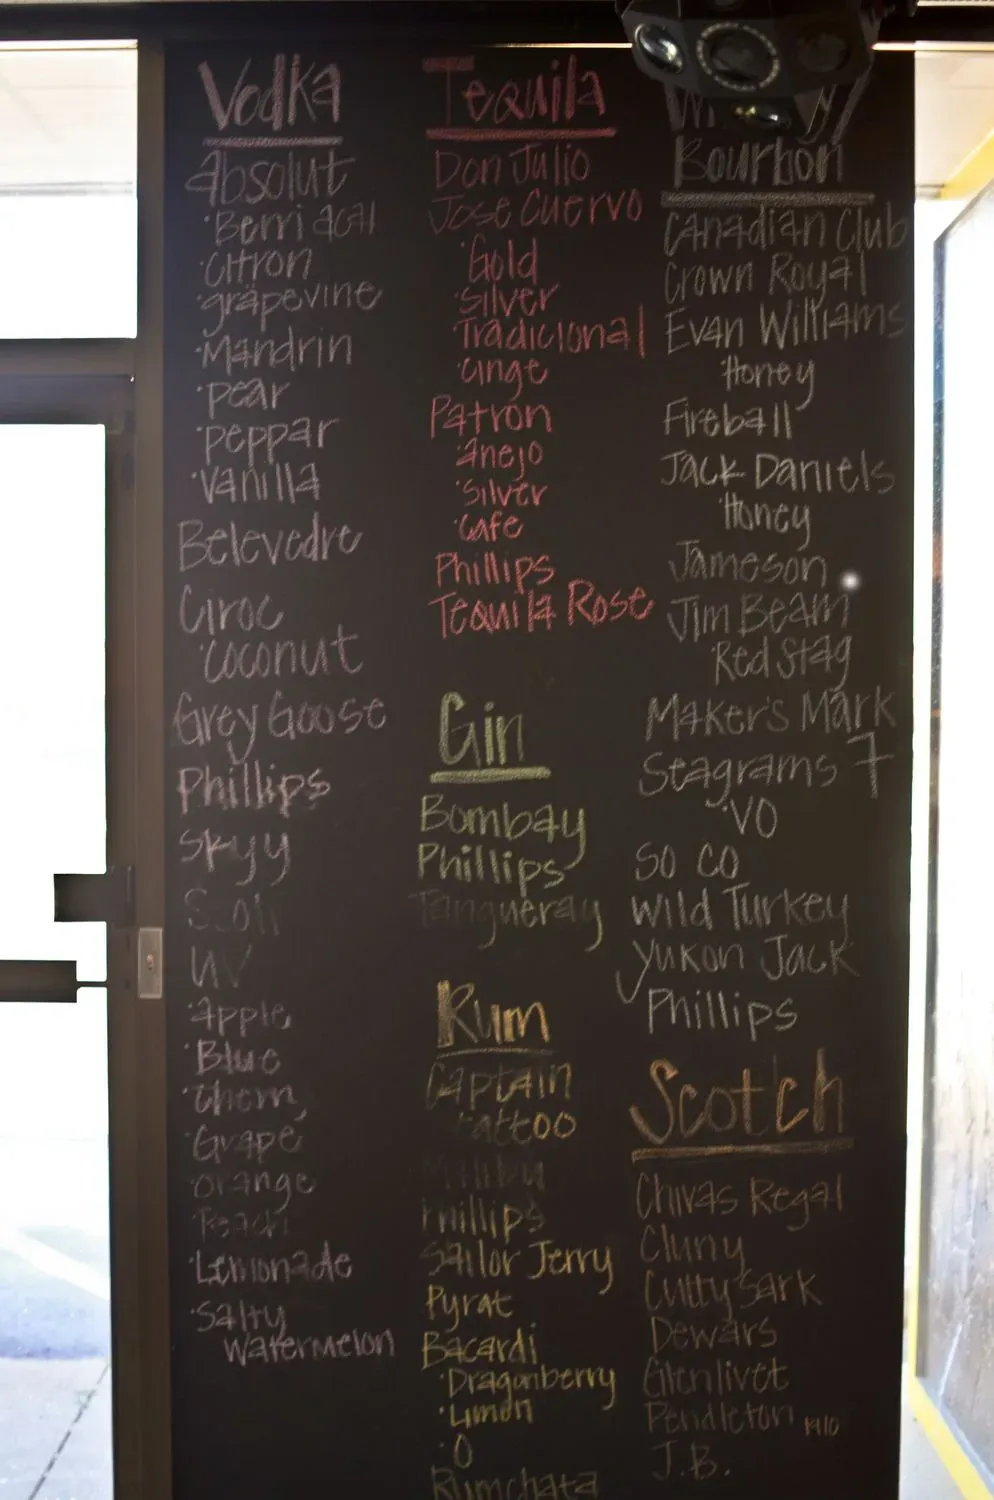 Vodka
Absolut
·Berri acai
·citron
·grapevine
·Mandrin
·pear
·peppar
·vanilla
Belevedre
Ciroc
·coconut
Grey Goose
Phillips
Skyy
UV
·apple
·Blue
·Cherry
·Grape
·orange
·Peach
·Lemonade
·Salty
Watermelon
Tequila
Don Julio
Jose Cuervo
·Gold
·Silver
·Tradicional
·Cinge
Patron
·anejo
·silver
·cafe
Phillips
Tequila Rose
Gin
Bombay
Phillips
Tangueray
Rum
Captain
·tattoo
Malibu
Phillips
Sailor Jerry
Pyrat
Bacardi
·Dragonberry
·Limon
·O
Rumchata
Bourbon
Canadian Club
Crown Royal
Evan Williams
·Honey
Fireball
Jack Daniels
·Honey
Jameson
Jim Beam
·Red Stag
Maker's Mark
Seagrams 7
·VO
SO CO
Wild Turkey
Yukon Jack
Phillips
Scotch
Chivas Regal
Cluny
Cutty Sark
Dewars
Glenlivet
Pendleton 1910
J.B.